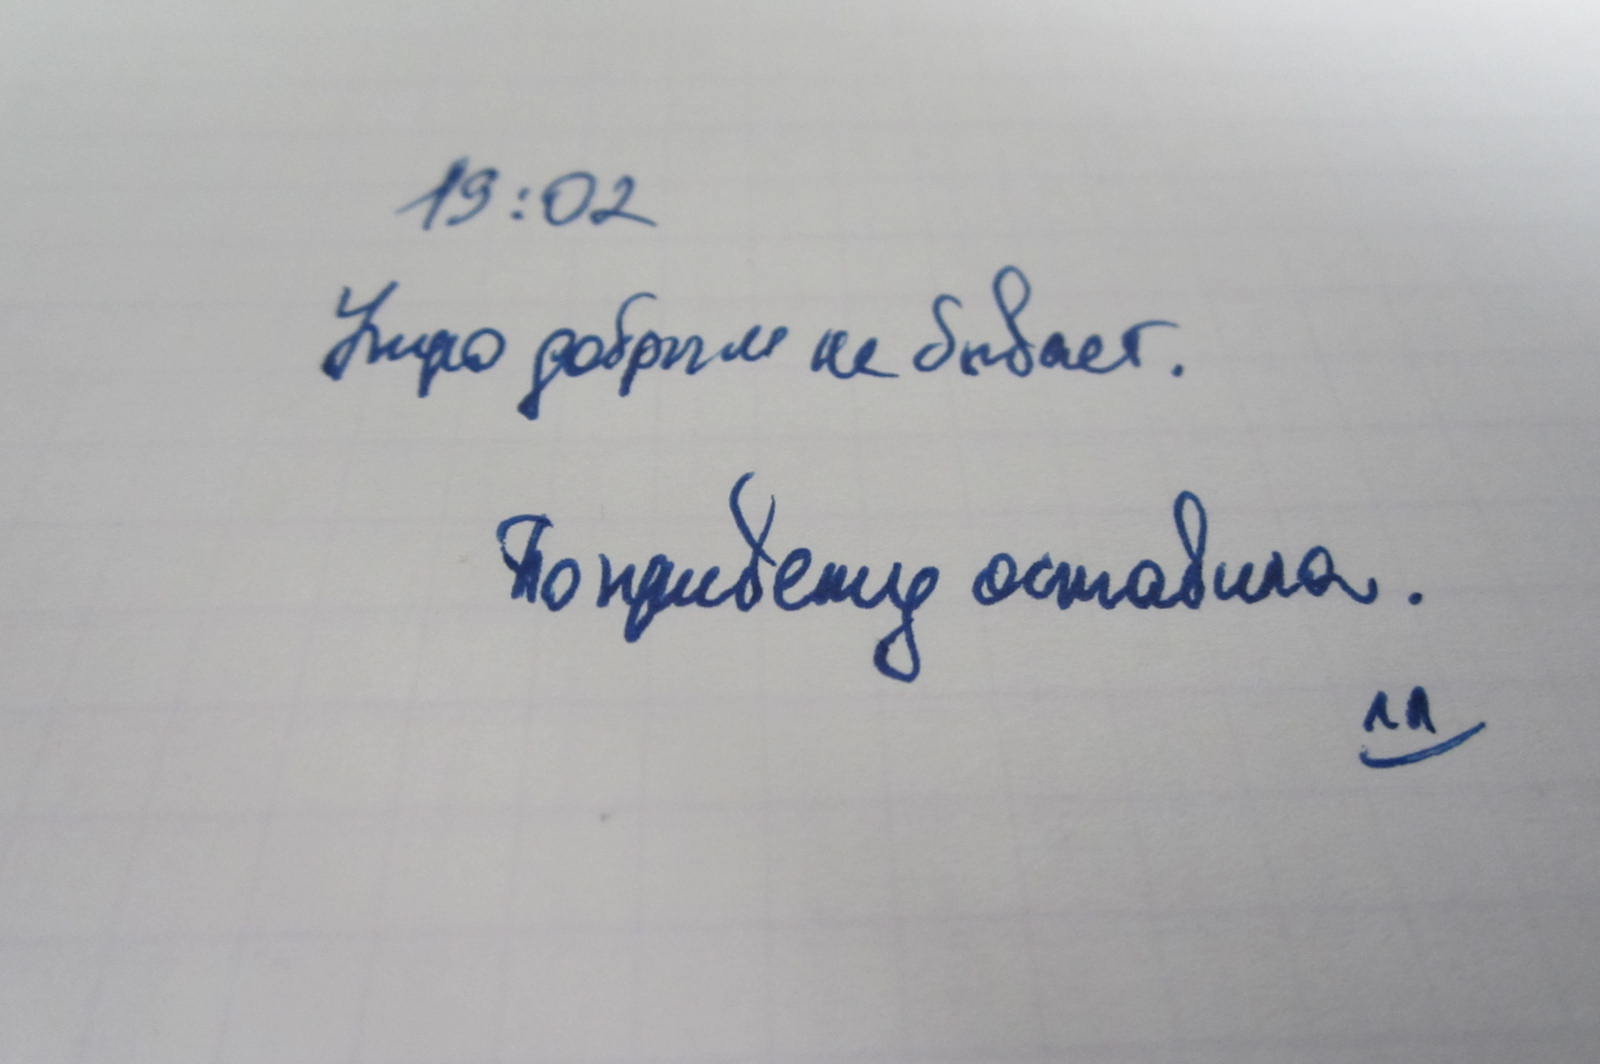 19:02
Утро добрым не бывает.
По привету оставила.
ЛЛ